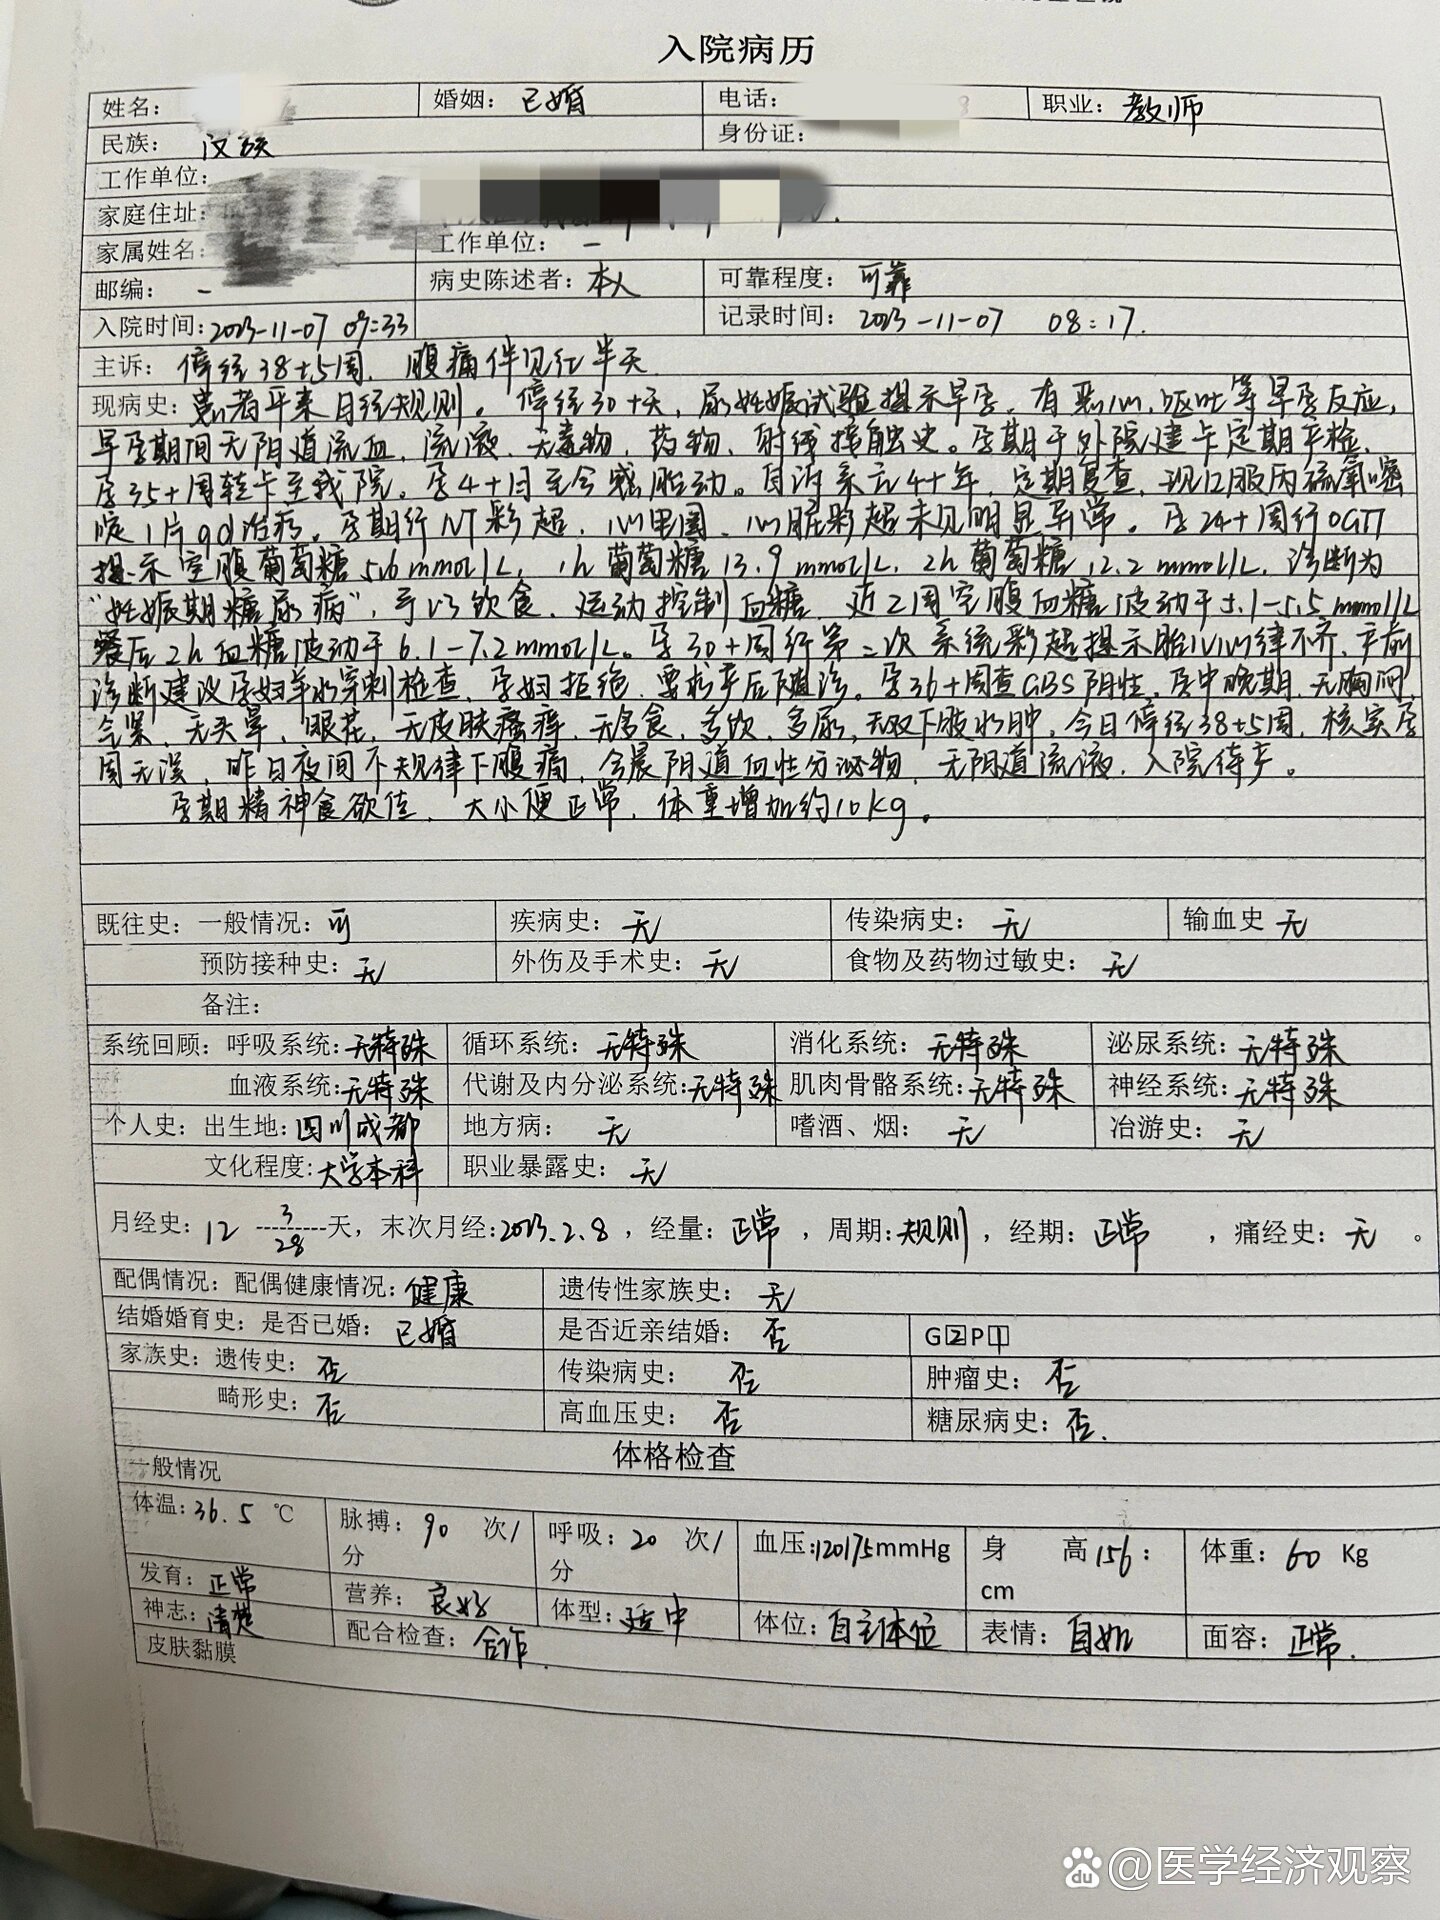 入院病历
姓名： 婚姻：已婚 电话： 职业：教师
民族：汉族 身份证：
工作单位：
家庭住址：
家属姓名： 工作单位：-
邮编：- 病史陈述者：本人 可靠程度：可靠
入院时间：2023-11-07 07:33 记录时间：2023-11-07 08:17.
主诉：停经38+5周，腹痛伴见红半天
现病史：患者平素月经规则。停经30+天，尿妊娠试验提示早孕，有恶心、呕吐等早孕反应，
早孕期间无阴道流血、流液，无毒物、药物、射线接触史。孕期于外院建卡定期产检，
孕35+周转卡至我院。孕4+月至今感胎动。自诉系亢4+年，定期复查，现口服丙硫氧嘧
啶1片qd治疗。孕期行NT彩超、心脏彩超未见明显异常。孕24+周行OGTT
提示空腹葡萄糖5.6mmol/L，1h葡萄糖13.9mmol/L，2h葡萄糖12.2mmol/L，诊断为
“妊娠期糖尿病”，予以饮食、运动控制血糖，近2周空腹血糖波动于5.1-5.5mmol/L
餐后2h血糖波动于6.1-7.2mmol/L。孕30+周行第二次系统彩超提示胎儿心律不齐，产前
诊断建议孕妇羊水穿刺检查，孕妇拒绝，要求产后随诊。孕36+周查GBS阴性，孕中晚期，无胸闷、
气紧，无头晕、眼花，无皮肤瘙痒，无多食、多饮、多尿，无双下肢水肿，今日停经38+5周，核实孕
周无误，昨日夜间不规律下腹痛，今晨阴道血性分泌物，无阴道流液，入院待产。
孕期精神食欲佳，大小便正常，体重增加约10kg。
既往史：一般情况：可 疾病史：无 传染病史：无 输血史 无
预防接种史：无 外伤及手术史：无 食物及药物过敏史：无
备注：
系统回顾：呼吸系统：无特殊 循环系统：无特殊 消化系统：无特殊 泌尿系统：无特殊
血液系统：无特殊 代谢及内分泌系统：无特殊 肌肉骨骼系统：无特殊 神经系统：无特殊
个人史：出生地：四川成都 地方病：无 嗜酒、烟：无 冶游史：无
文化程度：大学本科 职业暴露史：无
月经史：12 3/28 天，末次月经：2023.2.8，经量：正常，周期：规则，经期：正常，痛经史：无。
配偶情况：配偶健康情况：健康 遗传性家族史：无
结婚婚育史：是否已婚：已婚 是否近亲结婚：否 G2P1
家族史：遗传史：否 传染病史：否 肿瘤史：否
畸形史：否 高血压史：否 糖尿病史：否.
体格检查
一般情况
体温：36.5℃ 脉搏：90次/分 呼吸：20次/分 血压：120/75mmHg 身高156：cm 体重：60Kg
发育：正常 营养：良好 体型：适中 体位：自主体位 表情：自如 面容：正常.
神志：清楚 配合检查：合作.
皮肤黏膜
@医学经济观察